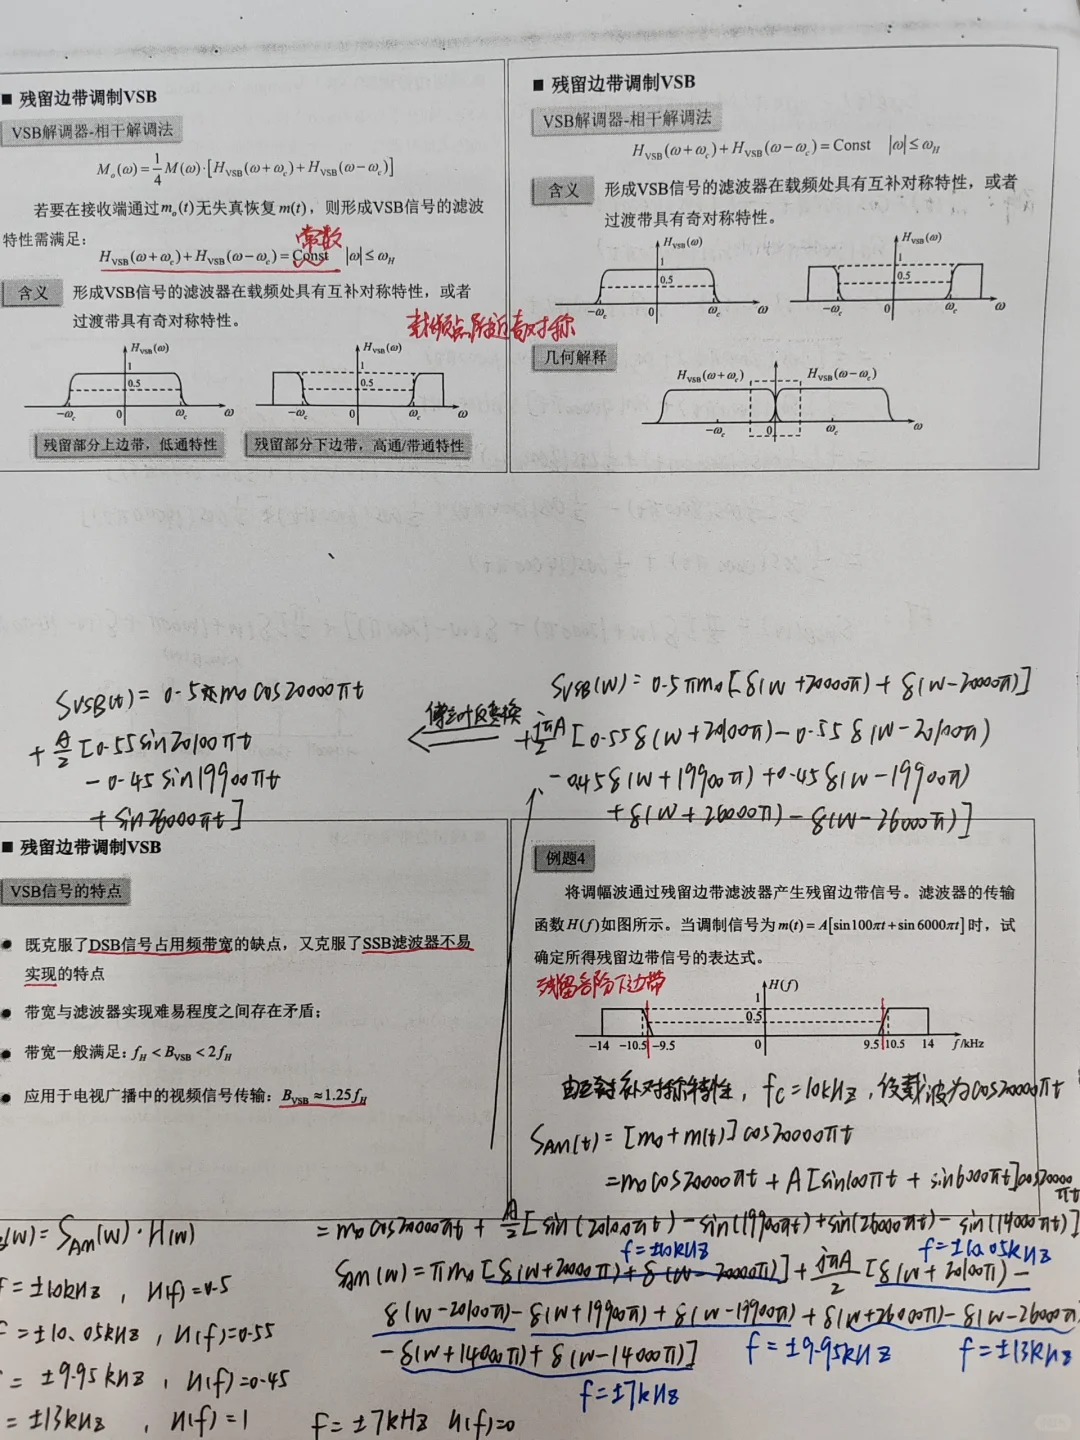 ■ 残留边带调制VSB
VSB解调器-相干解调法
Mₒ(ω)=1/4 M(ω)·[H_VSB(ω+ω_c)+H_VSB(ω−ω_c)]
若要在接收端通过mₒ(t)无失真恢复m(t)，则形成VSB信号的滤波
特性需满足：
常数
H_VSB(ω+ω_c)+H_VSB(ω−ω_c)=Const |ω|≤ω_H
含义 形成VSB信号的滤波器在载频处具有互补对称特性，或者
过渡带具有奇对称特性。
载频点附近奇对称
H_VSB(ω)
1
0.5
−ω_c 0 ω_c ω
H_VSB(ω)
1
0.5
−ω_c 0 ω_c ω
残留部分上边带，低通特性
残留部分下边带，高通/带通特性
■ 残留边带调制VSB
VSB解调器-相干解调法
H_VSB(ω+ω_c)+H_VSB(ω−ω_c)=Const |ω|≤ω_H
含义 形成VSB信号的滤波器在载频处具有互补对称特性，或者
过渡带具有奇对称特性。
H_VSB(ω)
1
0.5
−ω_c 0 ω_c ω
H_VSB(ω)
1
0.5
−ω_c 0 ω_c ω
几何解释
H_VSB(ω+ω_c) H_VSB(ω−ω_c)
−ω_c 0 ω_c ω
S_VSB(t)= 0.5 m₀ cos20000πt
+ A/2 [0.55sin20100πt
− 0.45 sin19900πt
+ sin26000πt]
傅立叶反变换
S_VSB(W)= 0.5πm₀[δ(W+20000π)+δ(W−20000π)]
+ jπA/2 [0.55δ(W+20100π)−0.55δ(W−20100π)
−0.45δ(W+19900π)+0.45δ(W−19900π)
+δ(W+26000π)−δ(W−26000π)]
■ 残留边带调制VSB
VSB信号的特点
● 既克服了DSB信号占用频带宽的缺点，又克服了SSB滤波器不易
实现的特点
● 带宽与滤波器实现难易程度之间存在矛盾；
● 带宽一般满足：f_H < B_VSB < 2f_H
● 应用于电视广播中的视频信号传输：B_VSB ≈1.25f_H
例题4
将调幅波通过残留边带滤波器产生残留边带信号。滤波器的传输
函数H(f)如图所示。当调制信号为m(t)=A[sin100πt+sin6000πt]时，试
确定所得残留边带信号的表达式。
残留部分下边带
H(f)
1
0.5
−14 −10.5 −9.5 0 9.5 10.5 14 f/kHz
由互补对称特性，fc=10kHz，设载波为cos20000πt
S_AM(t)=[m₀+m(t)]cos20000πt
=m₀cos20000πt + A[sin100πt + sin6000πt]cos20000πt
=m₀cos20000πt + A/2[sin(20100πt)−sin(19900πt)+sin(26000πt)−sin(14000πt)]
f=±10kHz f=±10.05kHz
S_AM(W)=πm₀[δ(W+20000π)+δ(W−20000π)]+jπA/2[δ(W+20100π)−
δ(W−20100π)−δ(W+19900π)+δ(W−19900π)+δ(W+26000π)−δ(W−26000π)
−δ(W+14000π)+δ(W−14000π)]
f=±9.95kHz f=±13kHz
f=±7kHz
(W)=S_AM(W)·H(W)
f=±10kHz，H(f)=0.5
f=±10.05kHz，H(f)=0.55
= ±9.95kHz，H(f)=0.45
= ±13kHz，H(f)=1 f=±7kHz H(f)=0